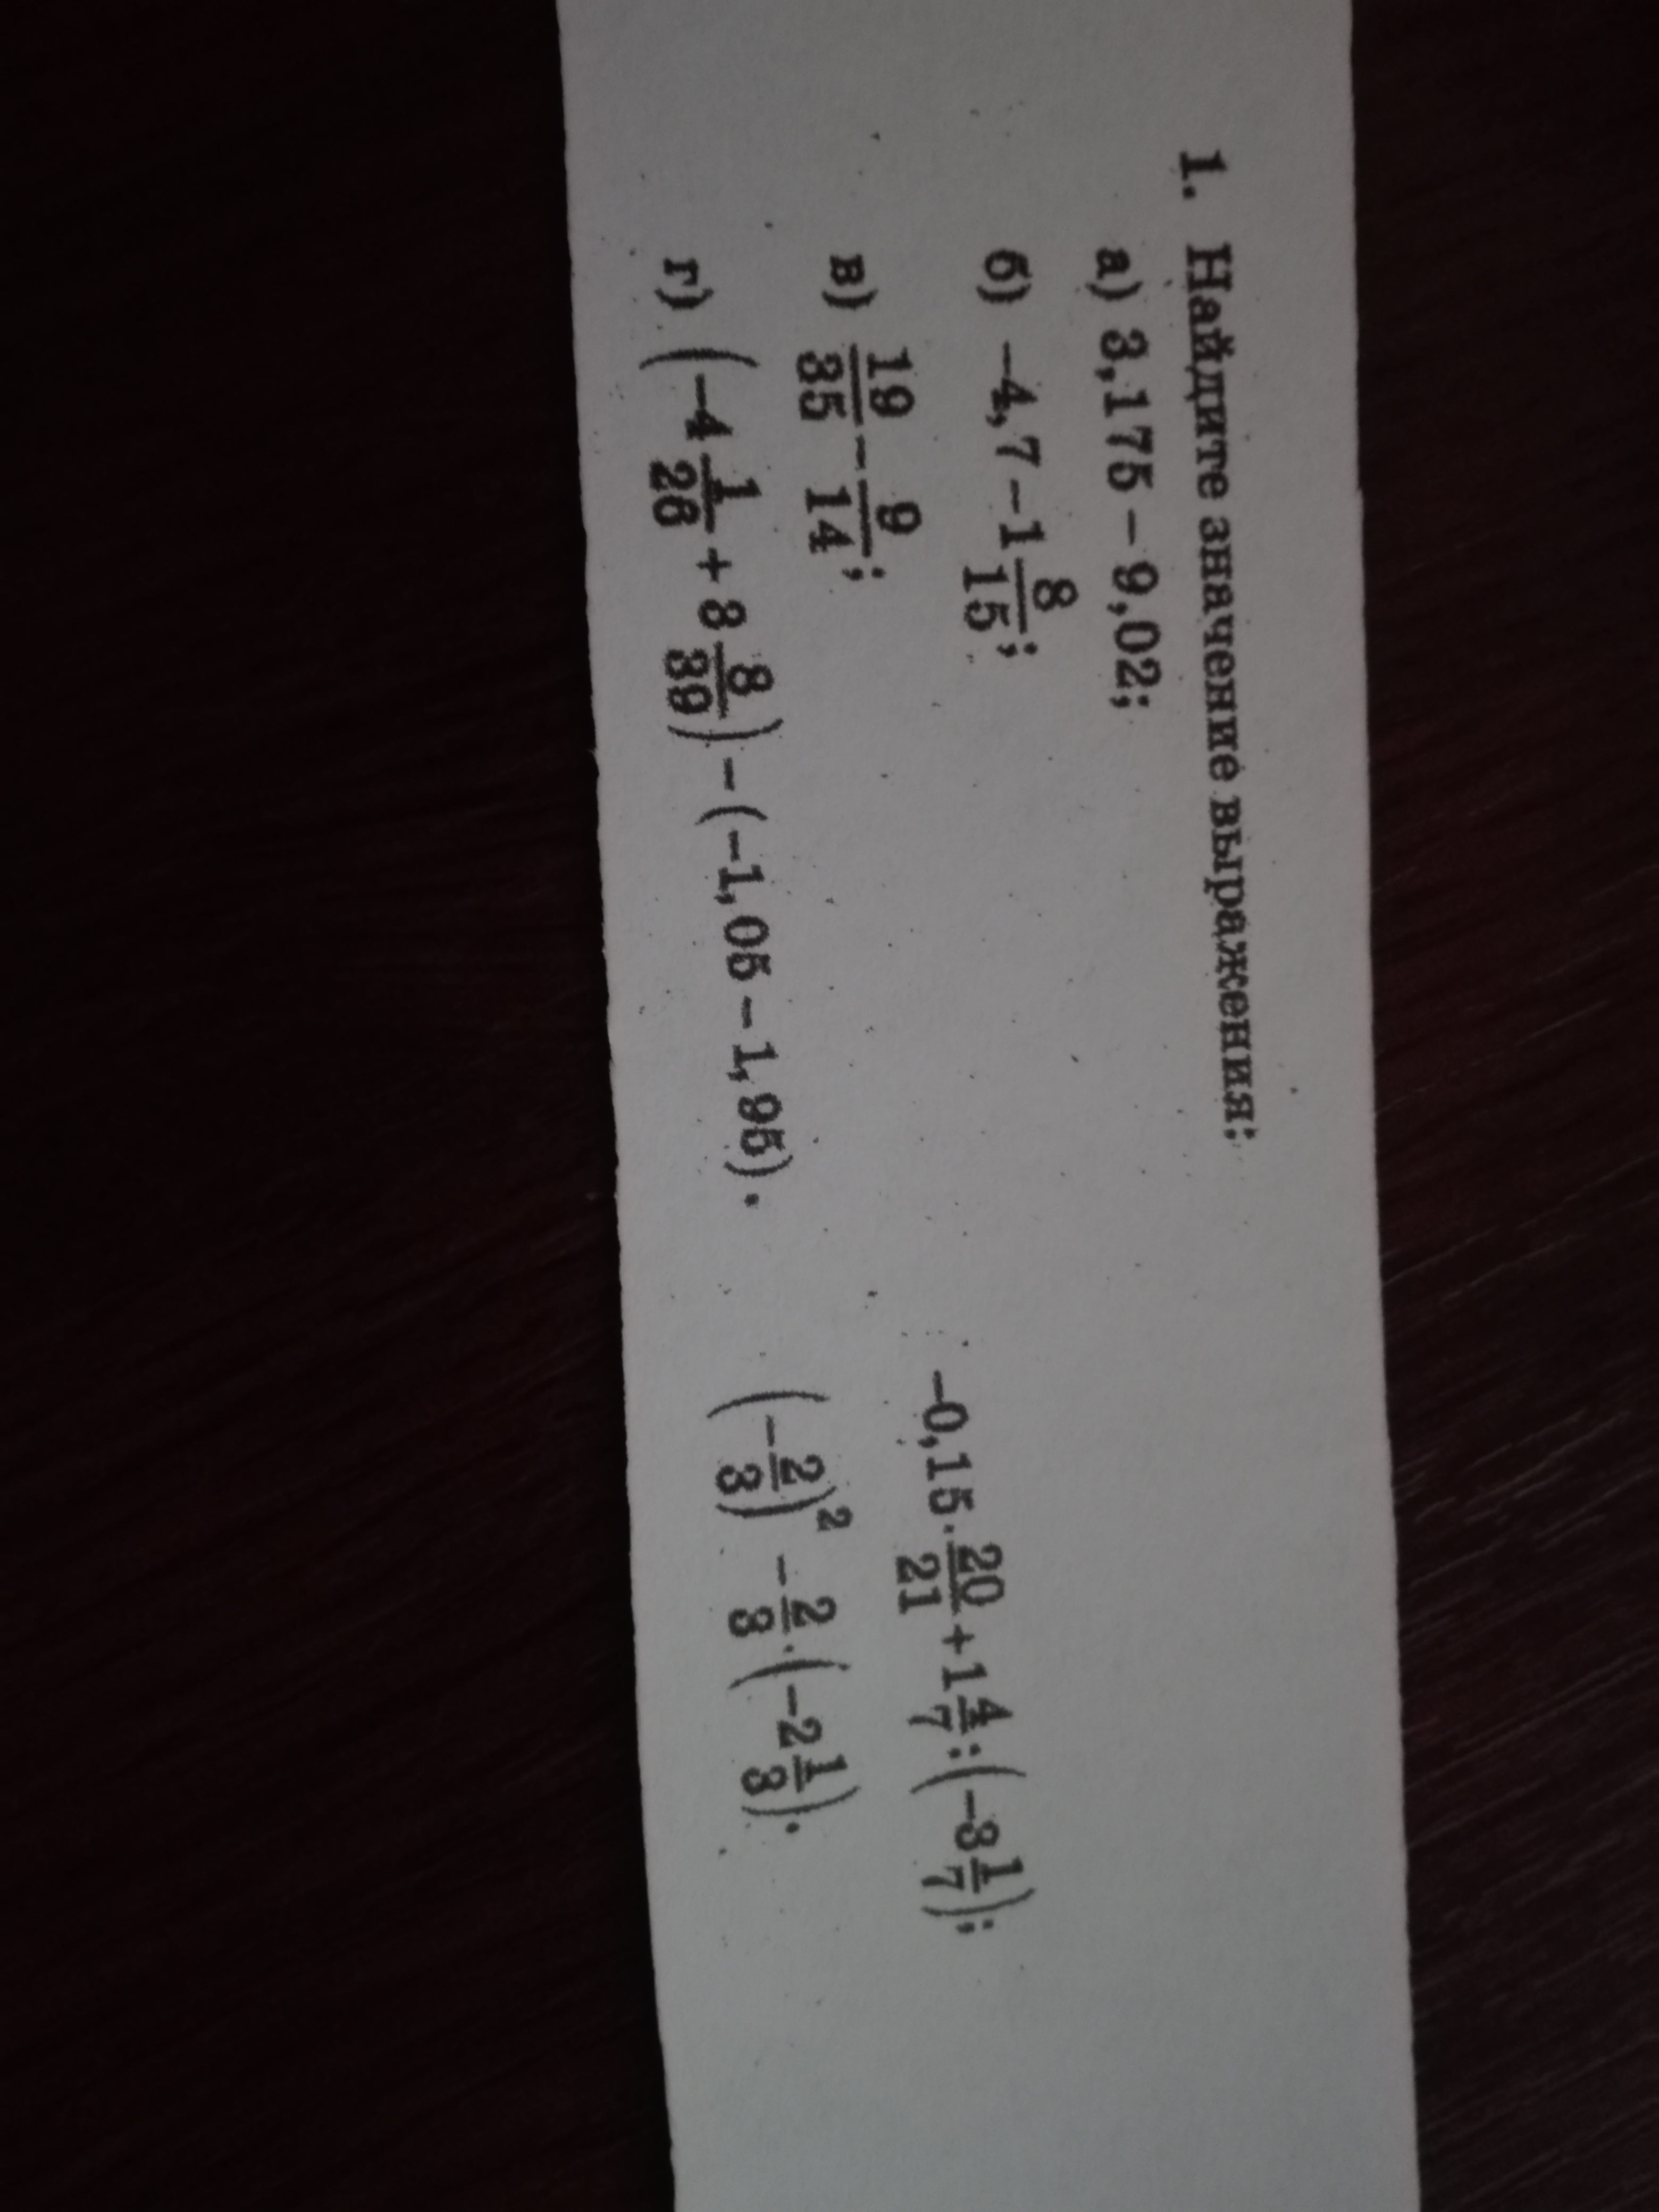 1. Найдите значение выражения:
а) 3,175 − 9,02;
б) −4,7 − 1 8/15;
в) 19/35 − 9/14;
г) (−4 1/26 + 3 8/39) − (−1,05 − 1,95).
−0,15 · 20/21 + 1 4/7 : (−3 1/7);
(−2/3)² − 2/3 · (−2 1/3).